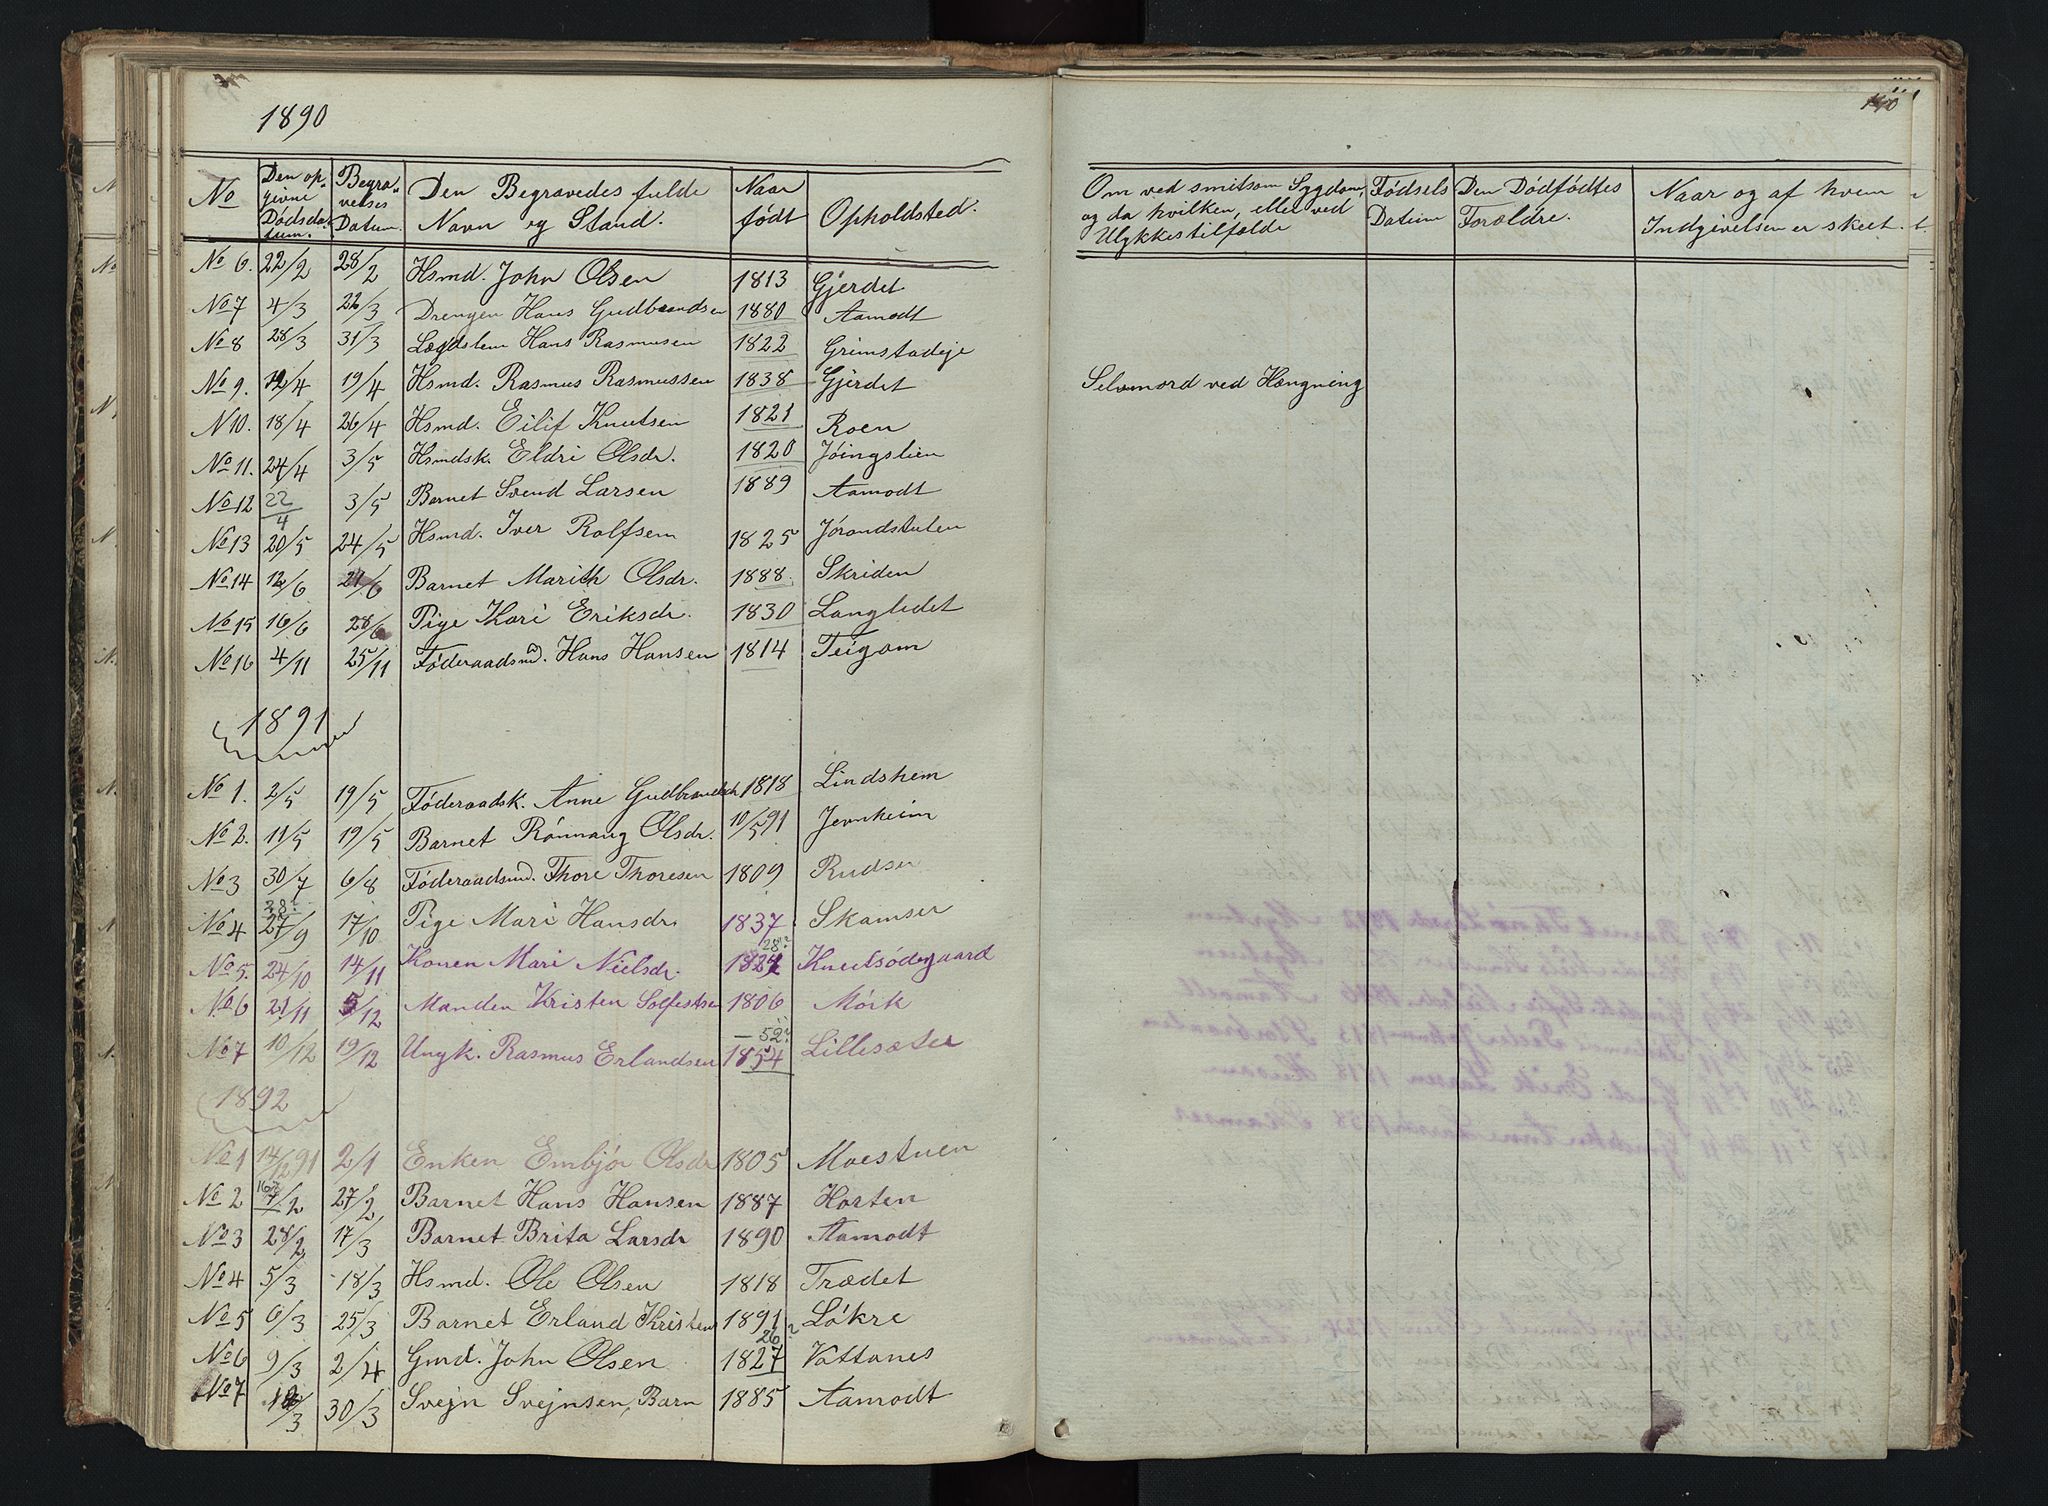 1890
140
No | Den opgivne Dødsdatum. | Begravelses Datum. | Den Begravedes fulde Navn og Stand. | Naar født | Opholdsted. | Om ved smitsom Sygdom, og da hvilken, eller ved Ulykkestilfælde | Fødsels Datum | Den Dødfødtes Forældre. | Naar og af hvem Indgivelsen er skeet.
No 6. 22/2 28/2 Hsmd. John Olsen 1813 Gjerdet
No 7 4/3 22/3 Drengen Hans Gudbrandsen 1880 Aamodt
No 8 28/3 31/3 Lægdslem Hans Rasmusen 1822 Grimstadeje
No 9. 12/4 19/4 Hsmd. Rasmus Rasmussen 1838 Gjerdet Selvmord ved Hængning
N 10. 18/4 26/4 Hsmd. Eilif Knutsen 1821 Roen
No 11. 24/4 3/5 Hsmdsk. Eldri Olsdr. 1820 Jøingslien
No 12 22/4 3/5 Barnet Svend Larsen 1889 Aamodt
No 13 20/5 24/5 Hsmd. Iver Rolfsen 1825 Jørandstulen
No 14 12/6 21/6 Barnet Marith Olsdr. 1888. Skriden
No 15 16/6 28/6 Pige Kari Eriksdr. 1830 Langledet
No 16 4/11 25/11 Føderaadsmd. Hans Hansen 1814 Teigom
1891
No 1. 2/5 19/5 Føderaadsk. Anne Gudbrandsd 1818 Lindshem
No 2. 11/5 19/5 Barnet Rønnaug Olsdr. 10/5 91 Jernheim
No 3 30/7 6/8 Føderaadsmd. Thore Thoresen 1809 Rudser
28?
No 4 27/9 17/10 Pige Mari Hansdr 1837 Skamser
28?
No 5. 24/10 14/11 Konen Mari Nielsdr. 1824 Knutsødegaard
No 6 21/11 5/12 Manden Kristen Solfestsen 1806 Mörk
52?
No 7 10/12 19/12 Ungk. Rasmus Erlandsen 1854 Lillesæter
1892
No 1 14/12 91 2/1 Enken Embjør Olsdr 1805 Moestuen
No 2 7/2 27/2 Barnet Hans Hansen 1887 Horten
No 3 28/2 17/3 Barnet Brita Larsdr 1890 Aamodt
No 4 5/3 18/3 Hsmd. Ole Olsen 1818 Trædet
No 5 6/3 25/3 Barnet Erland Kristens 1891 Løkre
26?
No 6 9/3 2/4 Gmd. John Olsen 1827 Vattanes
No 7 30/3 Svejn Svejnsen, Barn 1885 Aamodt